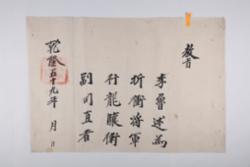 教旨
李魯述爲
折衝將軍
行龍驤衛
副司直者
乾隆五十九年 月 日